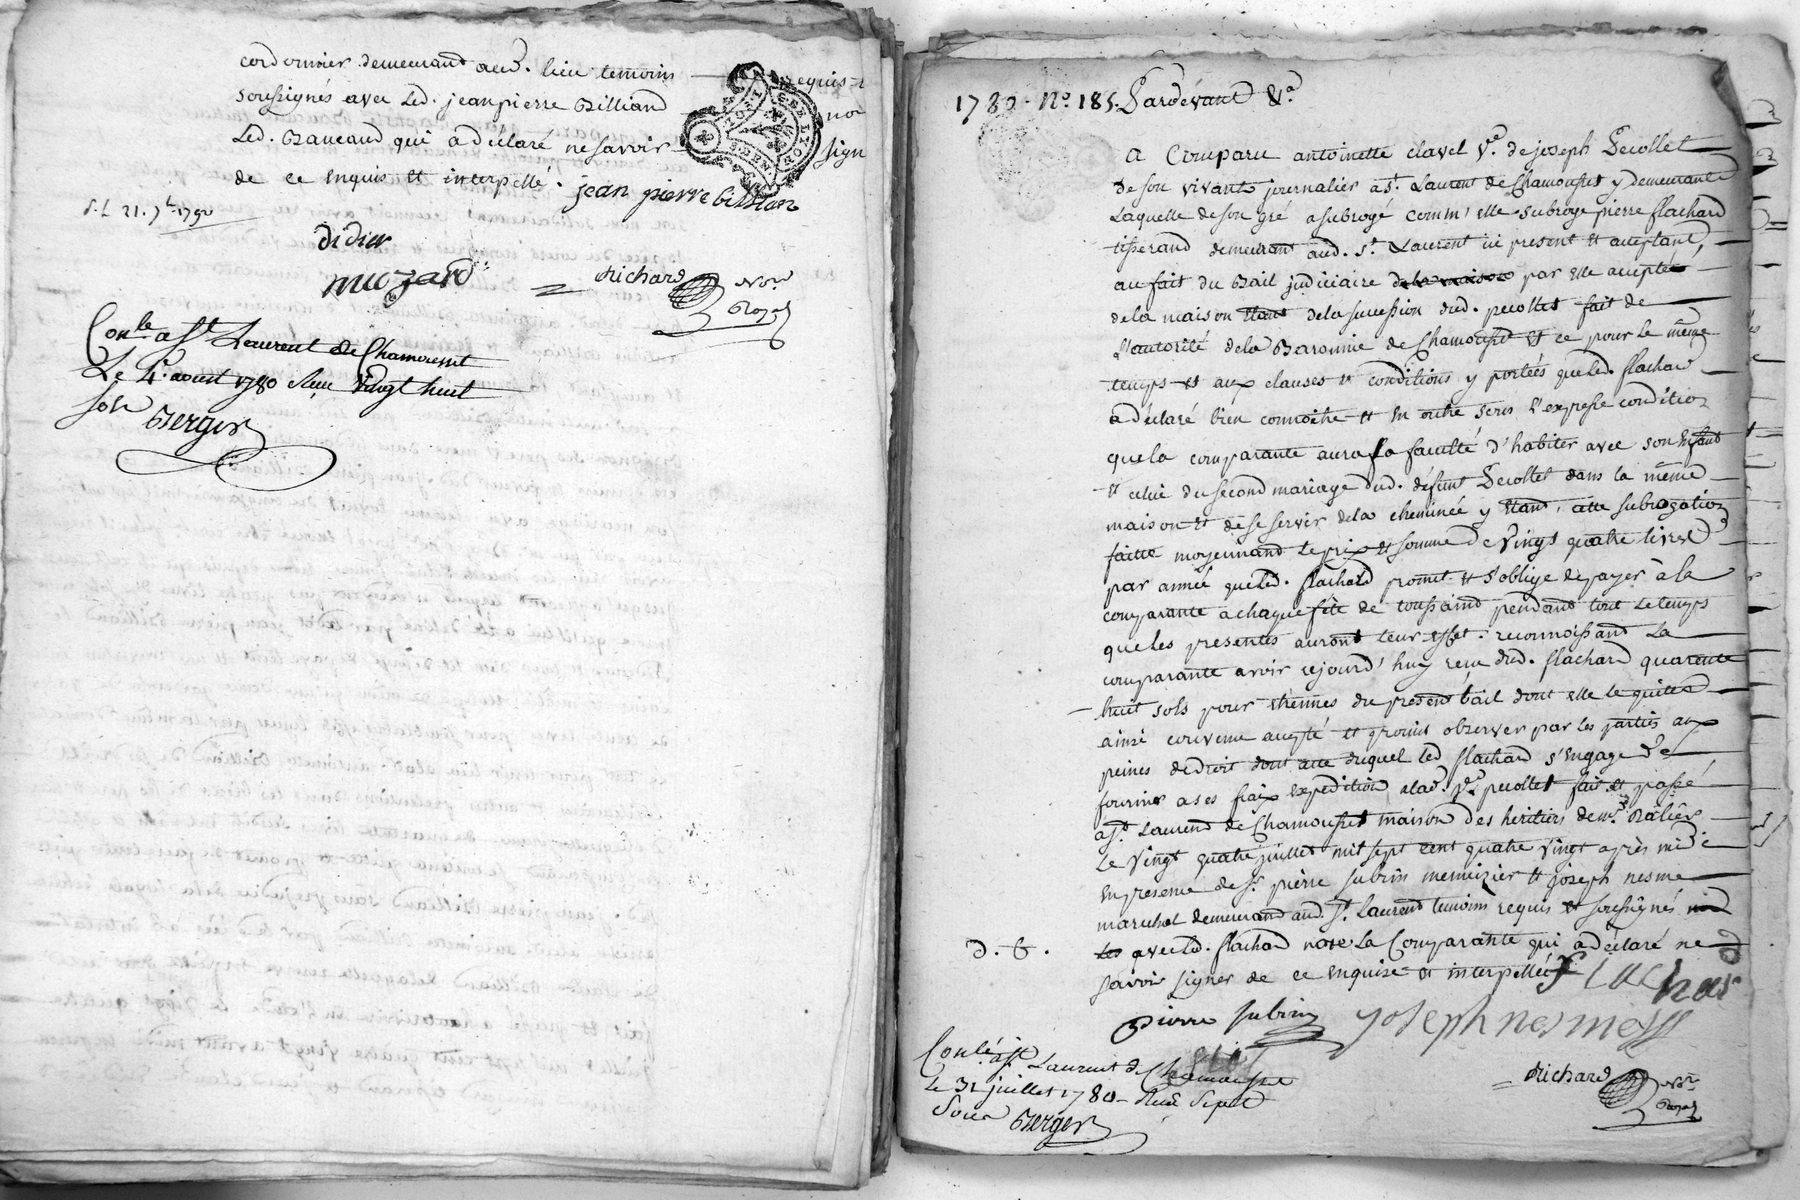 cordonnier demeurant aud. lieu temoins requis
soussignés avec led. jean pierre Billiand no
Led. Baneaud qui a déclaré ne savoir sign
de ce enquis et interpellé. jean pierre billian
21. 7.bre 1790
didier
muozard
Richard Nore
Royal
Conlé a St Laurent de Chamousset
Le 4. aoust 1780 Reçu vingt huit
sols
Berger
1780. No. 185. Pardevant &a
a Comparu antoinette clavel Ve. de joseph Pecollet
de son vivant journalier a St. Laurent de Chamousset y demeurante
Laquelle de son gré a subrogé comm' elle subroge pierre flachard
tisserand demeurant aud. St. Laurent ici present et acceptant,
au fait du Bail judiciaire de la maison par elle accepté
de la maison étant de la succession dud. pecollet fait de
L'autorité de la Baronnie de Chamousset et ce pour le même
temps et aux clauses et conditions y portées que led. flachard
a déclaré bien connoitre et en outre sous l'expresse condition
que la comparante aura la faculté d'habiter avec son enfant
et celui du second mariage dud. défunt Pecollet dans la même
maison et de se servir de la cheminée y étant, cette subrogation
faitte moyennant le prix et somme de vingt quatre livres
par année que led. flachard promet et s'oblige de payer à la
comparante a chaque fête de toussaint pendant tout le temps
que les presentes auront leur effet. reconnoissant La
comparante avoir cejourd'huy reçu dud. flachard quarente
huit sols pour étrennes du present bail dont elle le quitte
ainsi convenu accepté et promis observer par les parties aux
peines de droit dont acte duquel led flachard s'engage de
fournir a ses fraix expedition a lad. Ve. pecollet fait et passé
a St. Laurent de Chamousset maison des heritiers de mr. Ralier
Le vingt quatre juillet mil sept cent quatre vingt après midi
en presence de Sr. pierre Subrin menuizier et joseph nesme
marechal demeurant aud. St. Laurent temoins requis et soussignés
avec led. flachard non la Comparante qui a déclaré ne
D. &.
savoir signer de ce enquise et interpellée flachar
pierre Subrin joseph nesme
Richard Nore
Royal
Conlé a St Laurent de Chamousset
Le 31 juillet 1780. Reçu sept
Sous
Berger